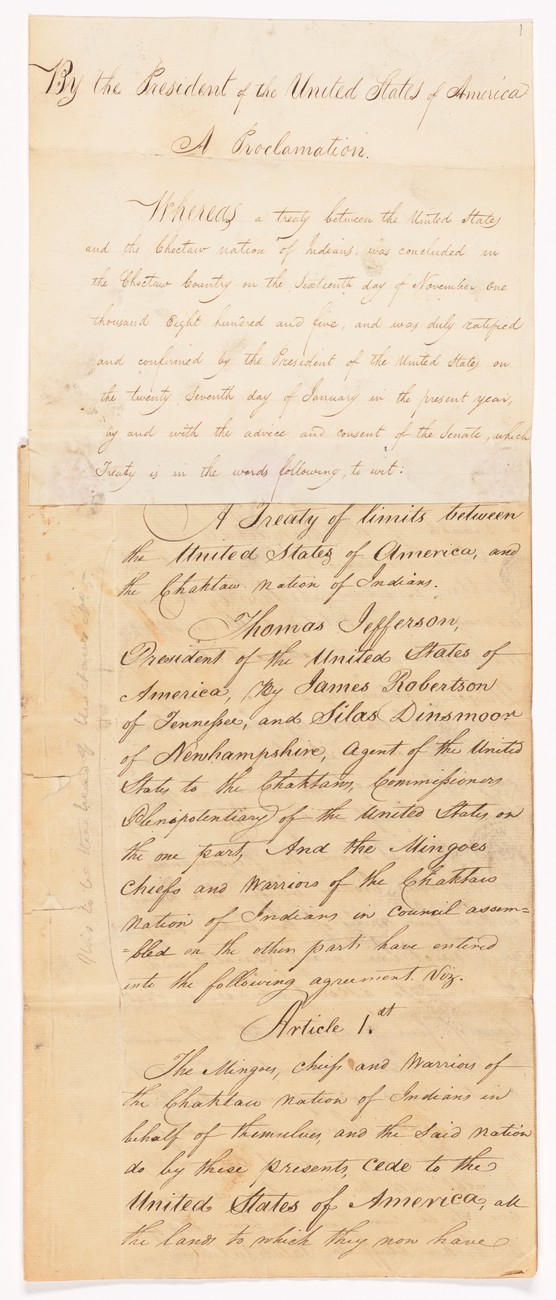 1
By the President of the United States of America
A Proclamation.
Whereas a treaty between the United States
and the Choctaw nation of Indians, was concluded in
the Choctaw Country on the Sixteenth day of November one
thousand Eight hundred and five, and was duly ratified
and confirmed by the President of the United States on
the twenty Seventh day of January in the present year,
by and with the advice and consent of the Senate, which
Treaty is in the words following, to wit:
A Treaty of limits between
the United States of America, and
the Chaktaw nation of Indians.
Thomas Jefferson,
President of the United States of
America, By James Robertson
of Tennessee, and Silas Dinsmoor
of Newhampshire, Agent of the United
States to the Chaktaws, Commissioners
Plenipotentiary of the United States on
the one part, And the Mingoes
Chiefs and Warriors of the Chaktaw
Nation of Indians in Council assem=
=bled on the other part, have entered
into the following agreement. Viz.
Article 1.st
The Mingoes, chiefs and Warriors of
the Chaktaw nation of Indians in
behalf of themselves, and the Said nation
do by these presents, cede to the
United States of America, all
the lands to which they now have
this to be the head of